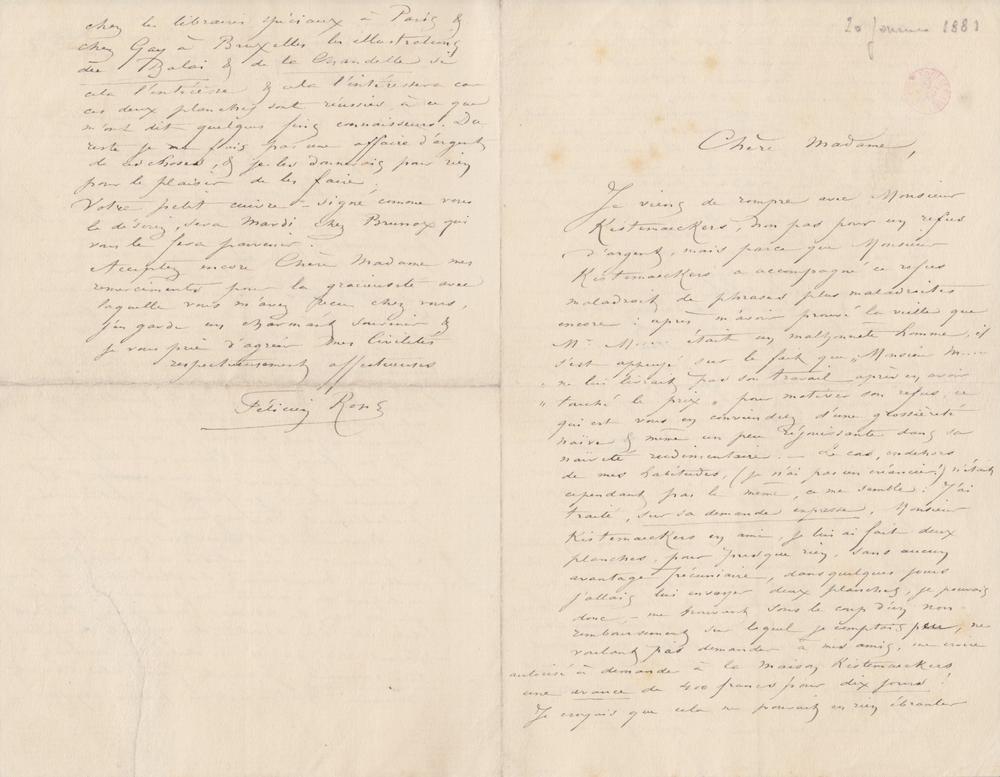 20 Janvier 1881
Chère Madame,
Je viens de rompre avec Monsieur
Kistemaeckers, non pas pour un refus
d'argent, mais parce que Monsieur
Kistemaeckers a accompagné ce refus
maladroit de phrases plus maladroites
encore : après m'avoir prouvé la veille que
Mr M..... était un malhonnête homme, il
s'est appuyé sur le fait que „Monsieur M....
„ ne lui livrait pas son travail après en avoir
„ touché le prix „ pour motiver son refus, ce
qui est vous en conviendrez d'une grossièreté
naïve & même un peu réjouissante dans sa
naïveté rudimentaire. — Le cas, en dehors
de mes habitudes, (je n'ai pas un créancier!) n'était
cependant pas le même, ce me semble : J'ai
traité, sur sa demande expresse, Monsieur
Kistemaeckers en ami, je lui ai fait deux
planches, pour presque rien, sans aucun
avantage pécuniaire, dans quelques jours
j'allais lui envoyer deux planches, je pouvais
donc, — me trouvant sous le coup d'un non-
remboursement sur lequel je comptais peu, ne
voulant pas demander à mes amis, me croire
autorisé à demander à la maison Kistemaeckers
une avance de 400 francs pour dix jours !
Je croyais que cela ne pouvait en rien ébranler
chez les libraires spéciaux à Paris &
chez Gay à Bruxelles les illustrations
du Balai & de la Chandelle si
cela l'intéresse & cela l'intéressera car
ces deux planches sont réussies, à ce que
m'ont dit quelques fins connaisseurs. Du
reste je ne fais pas une affaire d'argent
de ces choses, & je les donnerais pour rien
pour le plaisir de les faire.
Votre petit cuivre — signé comme vous
le désirez, sera Mardi chez Brunox qui
vous le fera parvenir.
Acceptez encore Chère Madame mes
remerciements pour la gracieuseté avec
laquelle vous m'avez reçu chez vous,
j'en garde un charmant souvenir &
je vous prie d'agréer mes civilités
respectueusement affectueuses
Félicien Rops